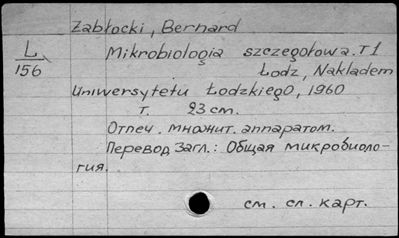 Zabłocki, Bernard
L
156
Mikrobiologia szczegołowa. T 1
Łodz, Nakładem
Uniwersytetu Łodzkiego, 1960
т. 23 см.
Отпеч. множит. аппаратом.
Перевод загл.: Общая микробиоло-
гия.
см. сл. карт.